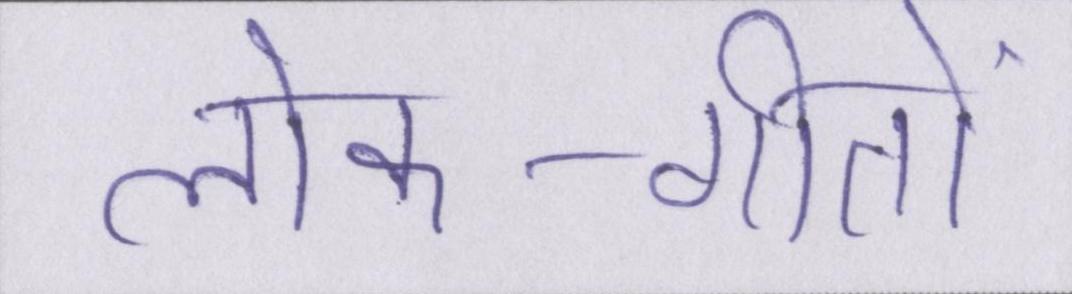 लोक-गीतों